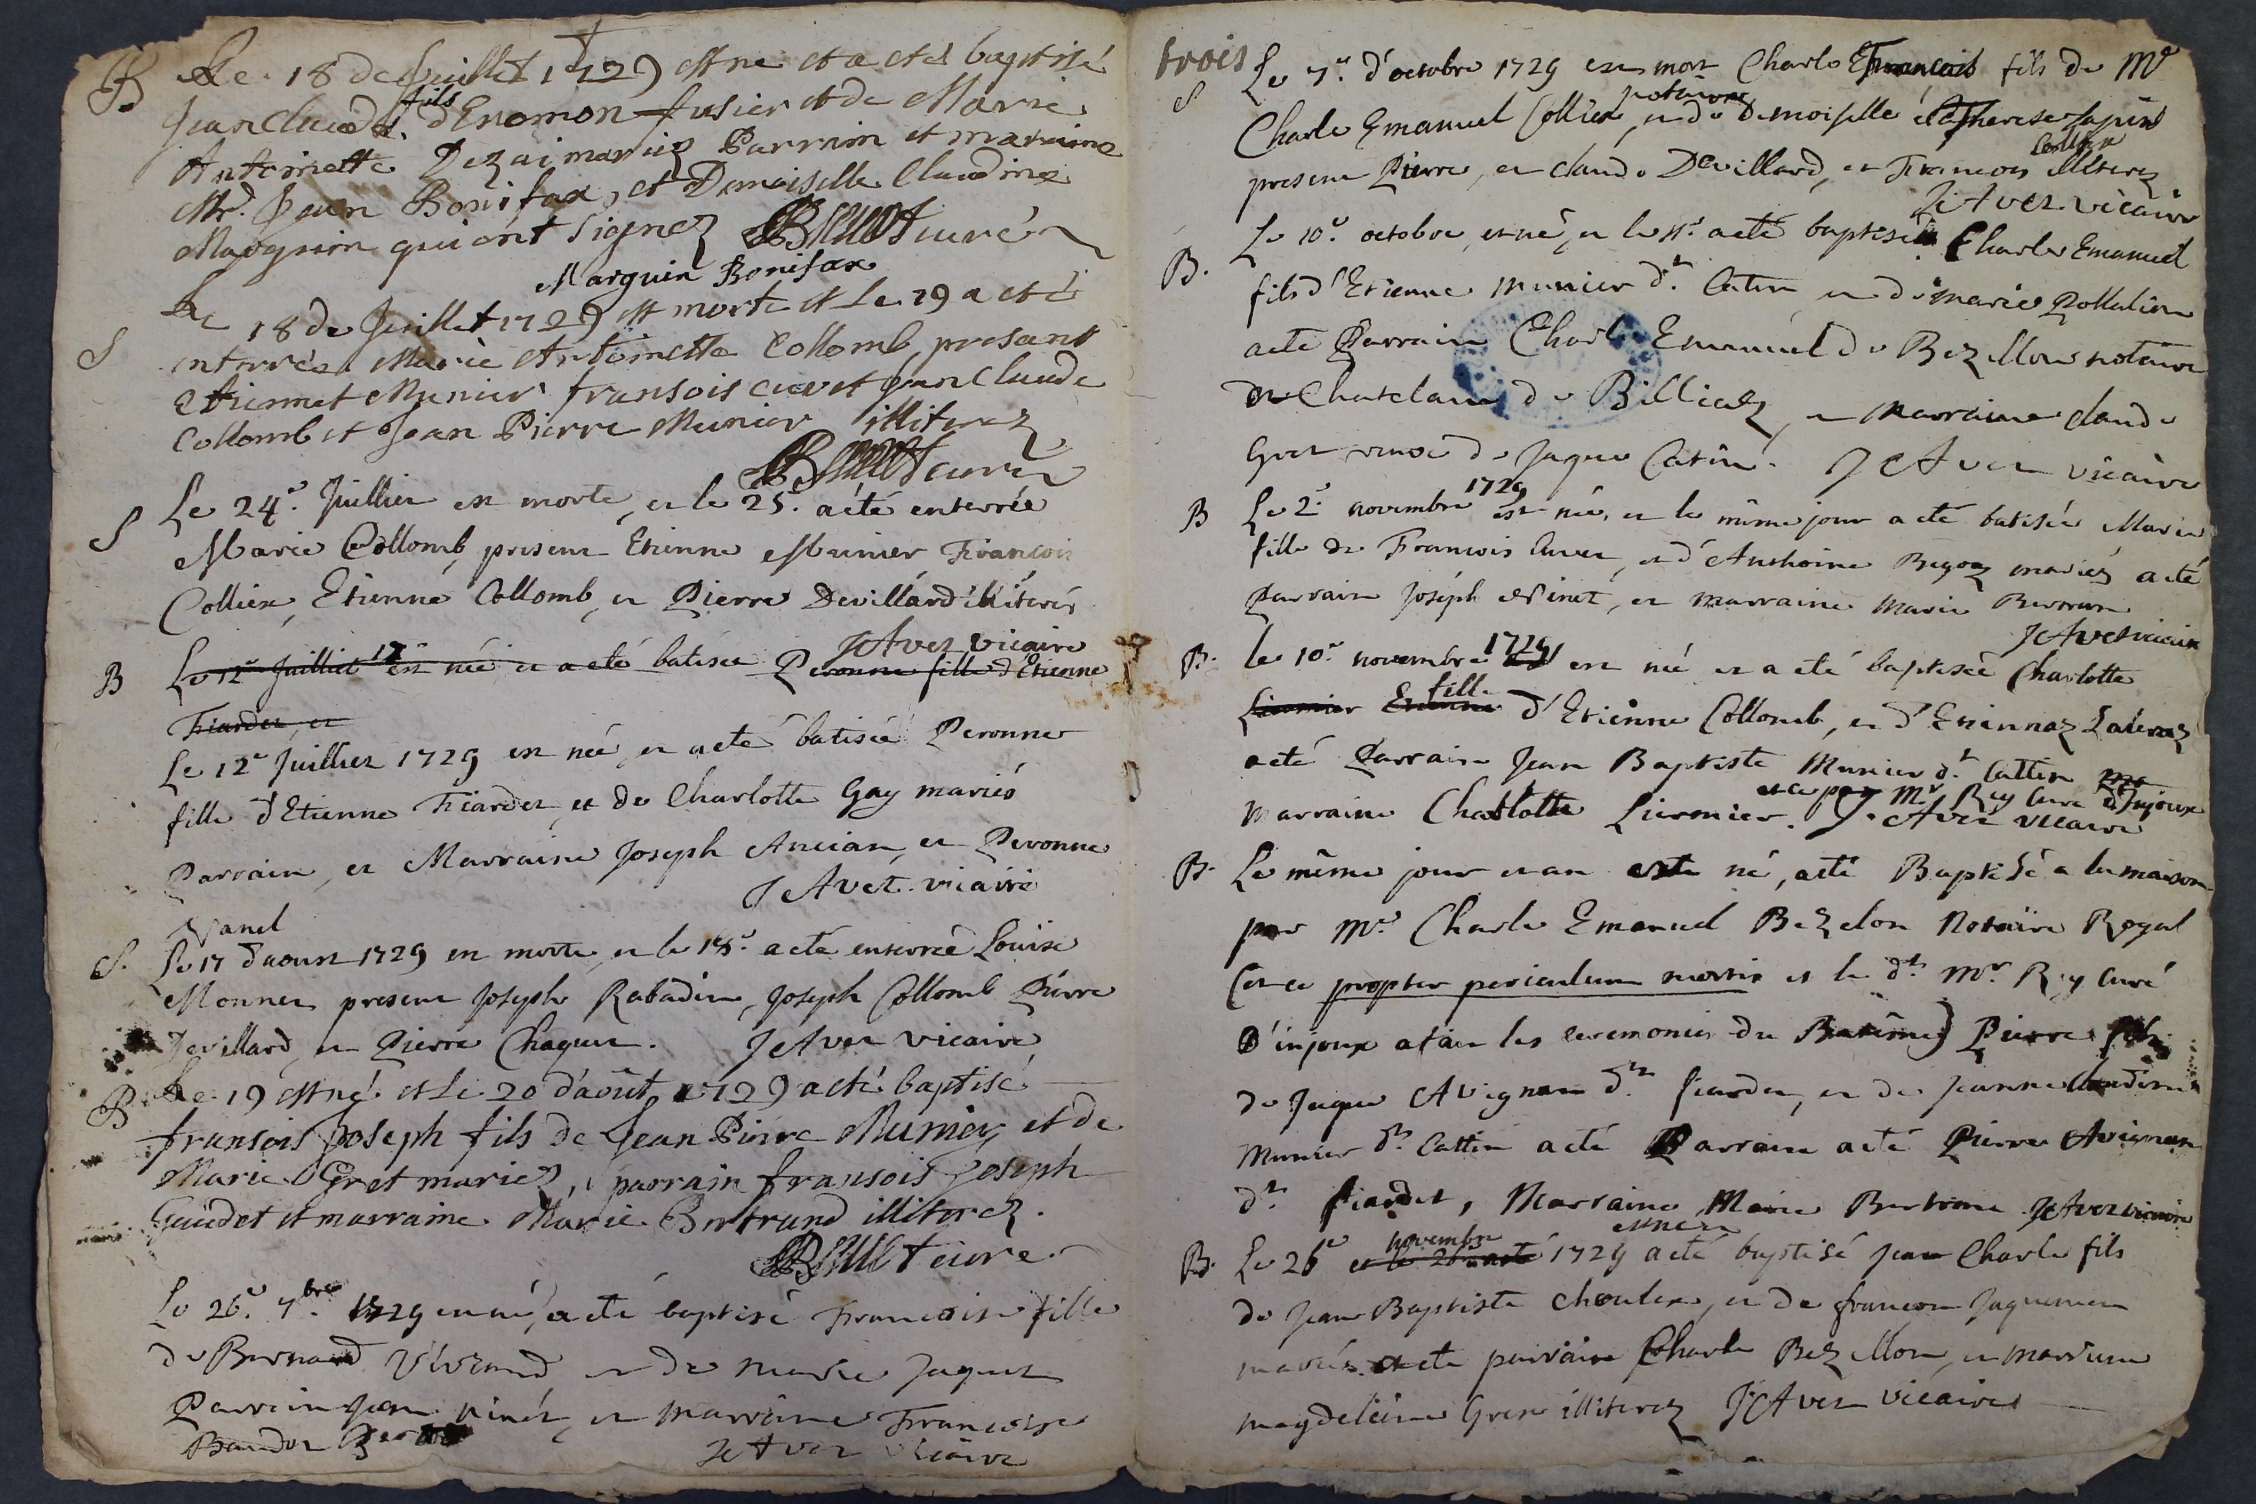 B Le 18 de Juillet 1729 est ne et a etes baptisé
Jean claude fils d'Enomon fusier et de Marie
Antoinette Dezai mariez Parrain et marraine
Mr. Jean Bonifax, et Demoiselle Claudine
Marguin qui ont signez curé
Marguin Bonifax
S Le 18 de Juillet 1729 est morte et le 19 a eté
enterrée Marie Antoinette Collomb, presant
Etiennet Munier fransois cuvet jean Claude
Collomb et Jean Pierre Munier illiterez
curé
S Le 24e. Juillet est morte, et le 25. a été enterrée
Marie Collomb, present Etienne Munier François
Colliex, Etienne Collomb, et Pierre Devillard illiterés
J Avet vicaire
B Le 12e Juillet est née et a eté batisée Peronne fille d'Etienne
Fiardet, et
Le 12e Juillet 1729 est née, et a eté batisée Peronne
fille d'Etienne Fiardet, et de Charlotte Gay mariés
Parrain, et Marraine Joseph Ancian, et Peronne
J Avet vicaire
Vanel
S. Le 17 d'aoust 1729 est morte, et le 18e. a eté enterreé Louise
Monnet present Joseph Rabadin, Joseph Collomb Pierre
Devillard, et Pierre Chaquet. J Avet vicaire
B Le 19 est né et Le 20 d'août 1729 a eté baptisé
fransois Joseph fils de Jean Pierre Munier, et de
Marie Gret mariez, parrain fransois Joseph
Gaudet et marraine Marie Bertrand illiterez.
cure
Le 26e. 7bre. 1729 est né, a eté baptisé Francoise fille
de Bernard Viviand, et de marie Jaquet
Parrain Jean pinet, et marraine Francoise
Baudet
J Avet vicaire
trois
S Le 7e. d'octobre 1729 est mort Charle François fils de Me
Charle Emanuel Colliex notaire, et de demoiselle Therese Japin
present Pierre, et claude Devillard, et Francois Colliex illiterez
J Avet vicaire
B. Le 10e. octobre, est né, et le 11e. a eté baptisé Charles Emanuel
fils d'Etienne Munier dt. Catin et de marie Pollalion
a eté Parrain Charle Emanuel de Bezellon notaire
et Chatelain de Billiaz, et marraine claude
Gret veuve de Jaque Catin. J Avet vicaire
B Le 2e. novembre 1729 est née, et le même jour a eté batisée Marie
fille de Francois Cuvet, et d'Anthoine Begoz mariéz a eté
parrain Joséph Pinet, et marraine Marie Bertran
J Avet vicaire
B. le 10e. novembre 1729 est né et a eté baptisée Charlotte
Liermier Etienne fille d'Etienne Collomb, et d'Etiennaz Laveraz
a eté Parrain Jean Baptiste Munier dt. Cattin
marraine Charlotte Liermier. et ce par Mr Rey Curé d'Injoux
J. Avet vicaire
B. Le même jour et an est né, a eté Baptisé a la maison
par Mr. Charle Emanuel Bezelon Notaire Royal
(et ce propter periculum mortis et le dt. Mr. Rey Curé
d'injoux a fait les ceremonies du Batême) Pierre fils
de Jaque Avignon dt. fiardet, et de Jeanne Claudine
Munier dt. Cattin a eté Parrain a eté Pierre Avignon
dt. fiardet, Marraine Marie Bertrand J Avet vicaire
B. Le 26e et le 26 a eté novembre 1729 est né et a eté baptisé Jean Charle fils
de Jean Baptiste Choulex, et de françoise Jaquemet
mariés. a eté parrain Charle Bezellon, et marraine
magdeleine Gret illiterez J Avet vicaire